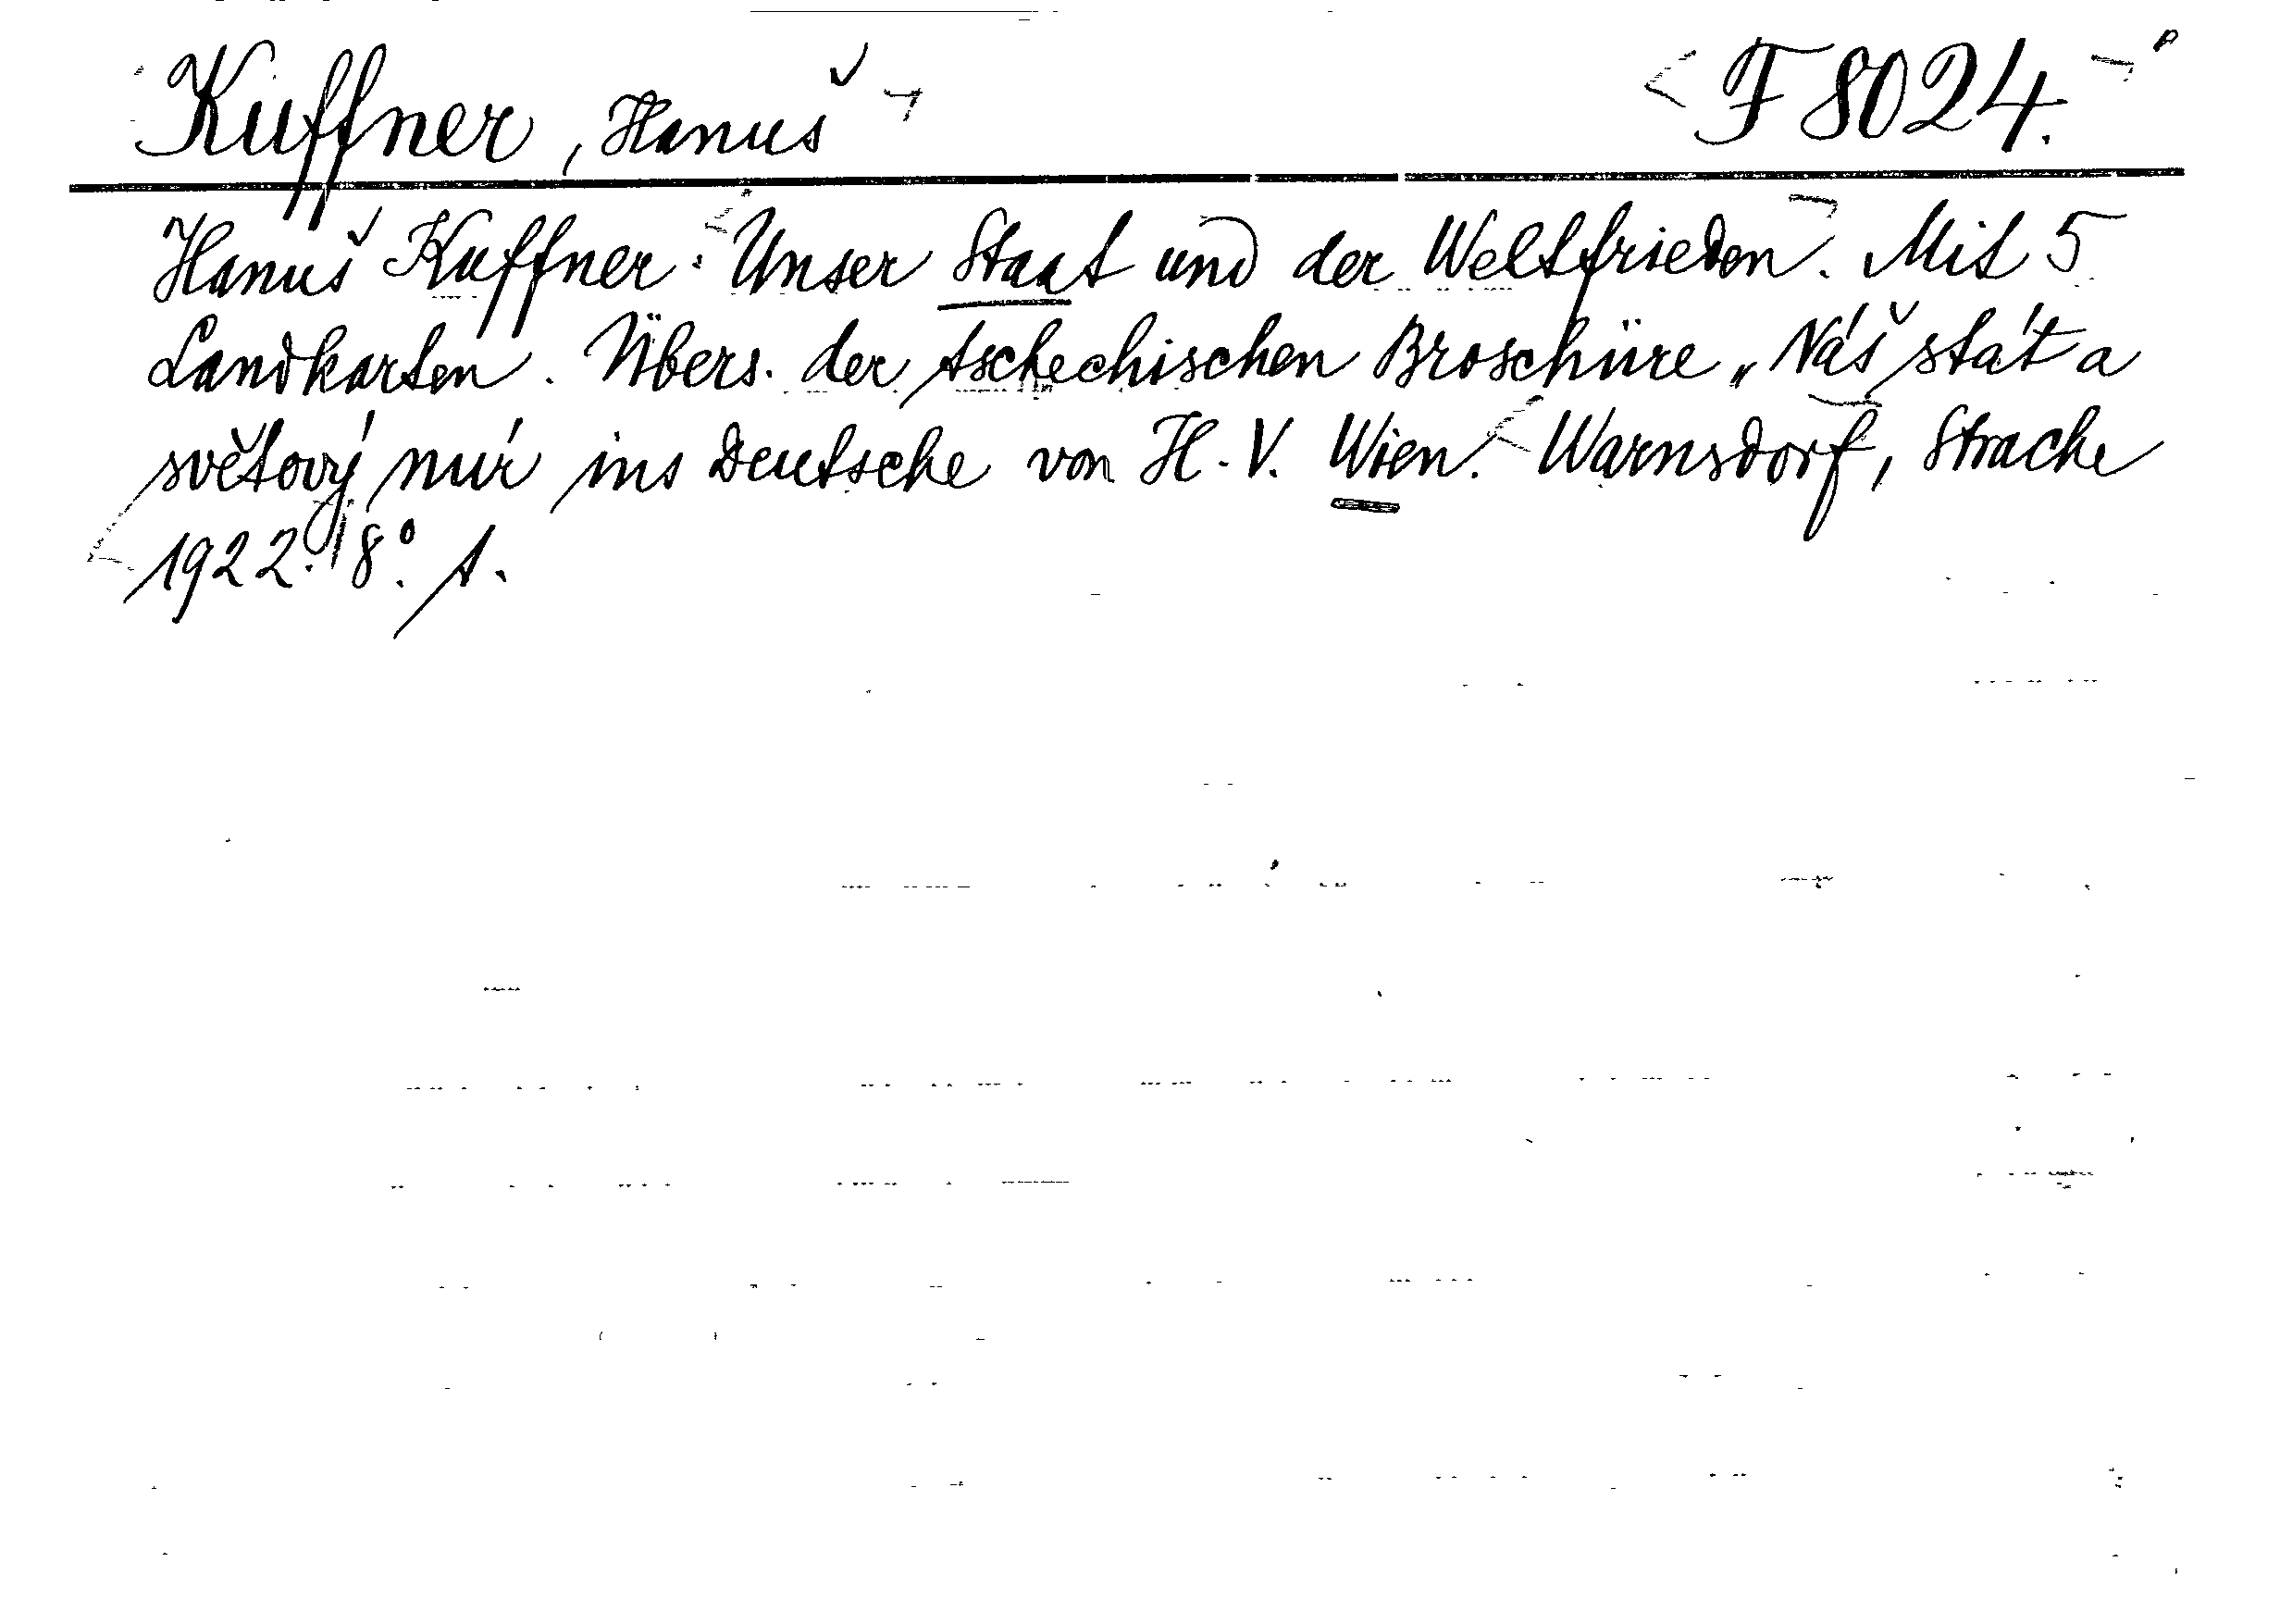 Kuffner, Hanuš F 8024.
Hanuš Kuffner: Unser Staat und der Weltfrieden. Mit 5
Landkarten. Übers. der tschechischen Broschüre „Náš stát a
světový mír ins Deutsche von H. V. Wien. Warnsdorf, Strache
1922. 8°. 1.